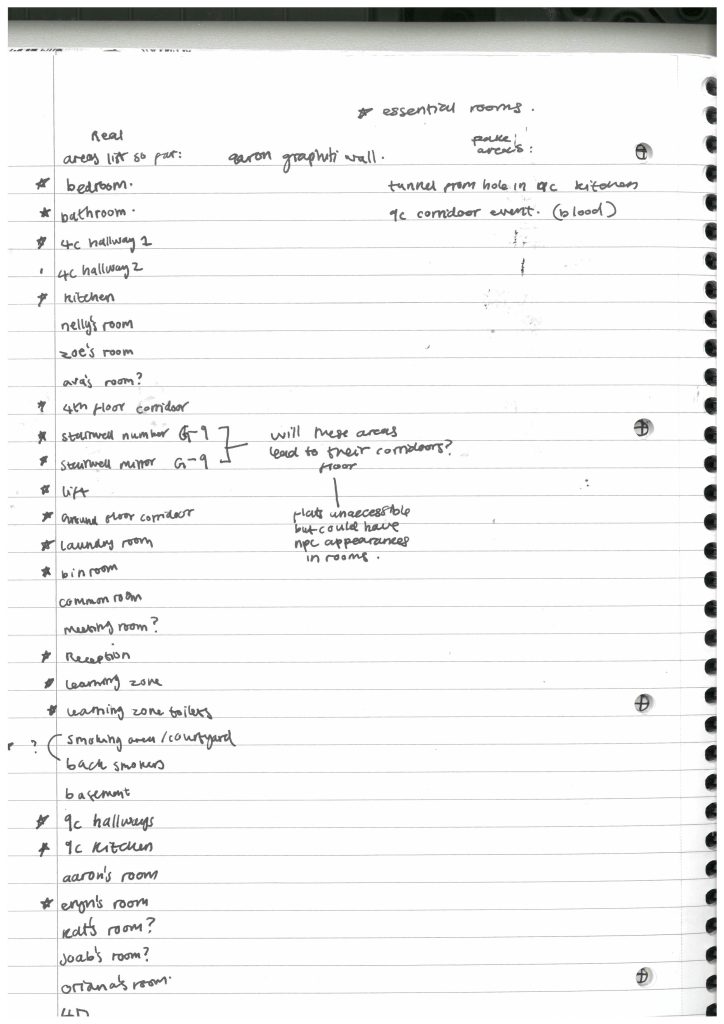 * essential rooms.
Real
areas list so far: aaron graphiti wall.
fake
areas:
* bedroom.
tunnel from hole in 9c kitchen
* bathroom.
9c corridor event. (blood)
* 4c hallway 1
4c hallway 2
* kitchen
nelly's room
zoe's room
ava's room?
* 4th floor corridor
* stairwell number G-9
* stairwell mirror G-9
will these areas
lead to their corridors?
floor
* lift
* ground floor corridor
flats unaccessible
but could have
npc appearances
in rooms.
* laundry room
* bin room
common room
meeting room?
* Reception
* learning zone
* learning zone toilets
? smoking area/courtyard
back smokers
basement
* 9c hallways
* 9c kitchen
aaron's room
* eryn's room
kat's room?
joab's room?
oriana's room.